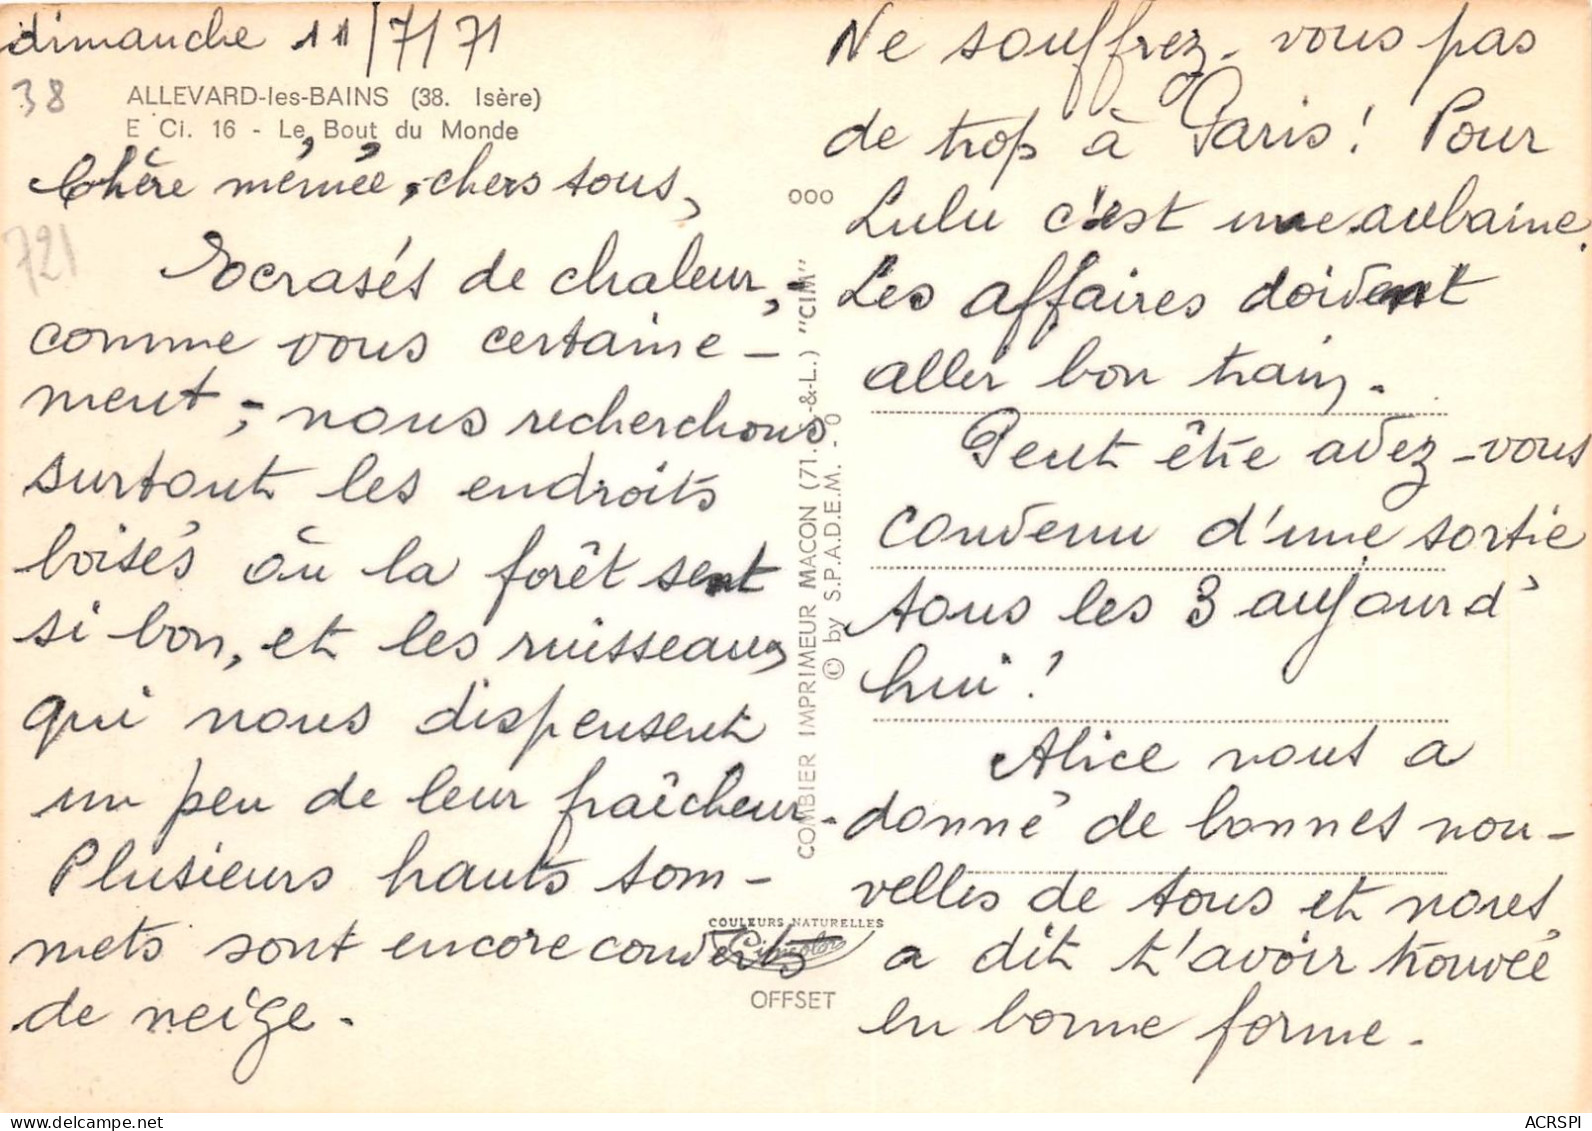 dimanche 11/7/71
38
ALLEVARD-les-BAINS (38. Isère)
E Ci. 16 - Le Bout du Monde
Chère mémée, chers tous,
721
Ecrasés de chaleur, -
comme vous certaine -
ment, - nous recherchons
surtout les endroits
boisés où la forêt sent
si bon, et les ruisseaux
qui nous dispensent
un peu de leur fraîcheur.
Plusieurs hauts som -
mets sont encore couverts
de neige.
OOO
COMBIER IMPRIMEUR MACON (71.-S.-&-L.) "CIM"
© by S.P.A.D.E.M. - 0
COULEURS NATURELLES
Cimcolor
OFFSET
Ne souffrez-vous pas
de trop à Paris! Pour
Lulu c'est une aubaine.
Les affaires doivent
aller bon train.
Peut être avez-vous
convenu d'une sortie
tous les 3 aujourd'
hui!
Alice nous a
donné de bonnes nou -
velles de tous et nous
a dit t'avoir trouvée
en bonne forme.
delcampe.net
ACRSPI